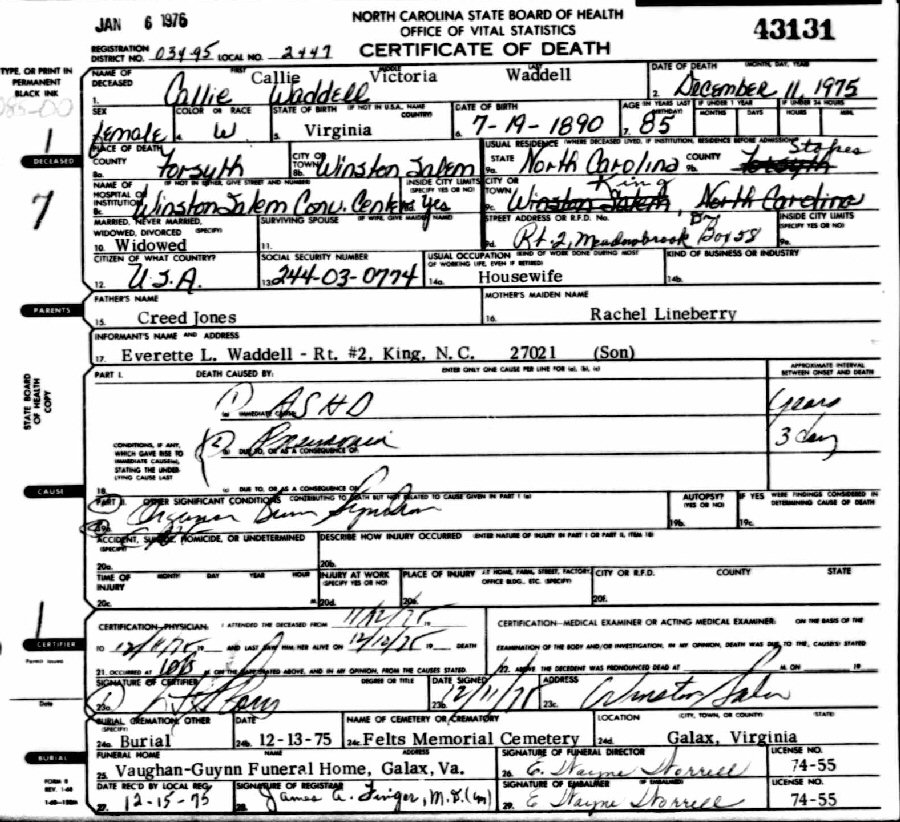 JAN 6 1976
NORTH CAROLINA STATE BOARD OF HEALTH
OFFICE OF VITAL STATISTICS
CERTIFICATE OF DEATH
43131
REGISTRATION DISTRICT NO. 03495 LOCAL NO. 2447
TYPE, OR PRINT IN PERMANENT BLACK INK
NAME OF DECEASED FIRST MIDDLE LAST
Callie Victoria Waddell
1. Callie Waddell
DATE OF DEATH (MONTH, DAY, YEAR)
2. December 11, 1975
SEX
female
COLOR OR RACE
4. W
STATE OF BIRTH (IF NOT IN U.S.A. NAME COUNTRY)
5. Virginia
DATE OF BIRTH
6. 7-19-1890
AGE (IN YEARS LAST BIRTHDAY)
7. 85
IF UNDER 1 YEAR MONTHS DAYS
IF UNDER 24 HOURS HOURS MIN.
1
DECEASED
7
PLACE OF DEATH
COUNTY
8a. Forsyth
CITY OR TOWN
8b. Winston Salem
USUAL RESIDENCE (WHERE DECEASED LIVED, IF INSTITUTION, RESIDENCE BEFORE ADMISSION)
STATE
9a. North Carolina
COUNTY
9b. Forsyth Stokes
NAME OF HOSPITAL OR INSTITUTION (IF NOT IN EITHER, GIVE STREET AND NUMBER)
8c. Winston Salem Conv. Center
INSIDE CITY LIMITS (SPECIFY YES OR NO)
8d. yes
CITY OR TOWN
9c. Winston Salem, King North Carolina
MARRIED, NEVER MARRIED, WIDOWED, DIVORCED (SPECIFY)
10. Widowed
SURVIVING SPOUSE (IF WIFE, GIVE MAIDEN NAME)
11.
STREET ADDRESS OR R.F.D. No.
9d. Rt 2, Meadowbrook Dr Box 58
INSIDE CITY LIMITS (SPECIFY YES OR NO)
9e.
CITIZEN OF WHAT COUNTRY?
12. U.S.A.
SOCIAL SECURITY NUMBER
13. 244-03-0774
USUAL OCCUPATION (KIND OF WORK DONE DURING MOST OF WORKING LIFE, EVEN IF RETIRED)
14a. Housewife
KIND OF BUSINESS OR INDUSTRY
14b.
PARENTS
FATHER'S NAME
15. Creed Jones
MOTHER'S MAIDEN NAME
16. Rachel Lineberry
INFORMANT'S NAME AND ADDRESS
17. Everette L. Waddell - Rt. #2, King, N. C. 27021 (Son)
STATE BOARD OF HEALTH COPY
PART I. DEATH CAUSED BY: ENTER ONLY ONE CAUSE PER LINE FOR (a), (b), (c)
APPROXIMATE INTERVAL BETWEEN ONSET AND DEATH
1) ASHD years
(a) IMMEDIATE CAUSE
CONDITIONS, IF ANY, WHICH GAVE RISE TO IMMEDIATE CAUSE(a), STATING THE UNDERLYING CAUSE LAST
2) Pneumonia 3 day
(b) DUE TO, OR AS A CONSEQUENCE OF:
(c) DUE TO, OR AS A CONSEQUENCE OF:
18.
CAUSE
PART II. OTHER SIGNIFICANT CONDITIONS CONTRIBUTING TO DEATH BUT NOT RELATED TO CAUSE GIVEN IN PART I (a)
19a.
AUTOPSY? (YES OR NO)
19b.
IF YES WERE FINDINGS CONSIDERED IN DETERMINING CAUSE OF DEATH
19c.
ACCIDENT, SUICIDE, HOMICIDE, OR UNDETERMINED (SPECIFY)
20a.
DESCRIBE HOW INJURY OCCURRED (ENTER NATURE OF INJURY IN PART I OR PART II, ITEM 18)
20b.
TIME OF INJURY MONTH DAY YEAR HOUR
20c. M
INJURY AT WORK (SPECIFY YES OR NO)
20d.
PLACE OF INJURY AT HOME, FARM, STREET, FACTORY, OFFICE BLDG., ETC. (SPECIFY)
20e.
CITY OR R.F.D. COUNTY STATE
20f.
1
CERTIFIER
CERTIFICATION-PHYSICIAN: I ATTENDED THE DECEASED FROM 11/12/75
TO 12/11/75 19 AND LAST SAW HIM HER ALIVE ON 12/10/75 19 DEATH
21. OCCURRED AT M ON THE DATE STATED ABOVE, AND IN MY OPINION, FROM THE CAUSES STATED.
CERTIFICATION-MEDICAL EXAMINER OR ACTING MEDICAL EXAMINER: ON THE BASIS OF THE
EXAMINATION OF THE BODY AND/OR INVESTIGATION, IN MY OPINION, DEATH WAS DUE TO THE CAUSE(S) STATED
22. ABOVE THE DECEDENT WAS PRONOUNCED DEAD AT M. ON 19
Permit Issued
Date
SIGNATURE OF CERTIFIER DEGREE OR TITLE
23a.
DATE SIGNED
23b. 12/11/75
ADDRESS
23c. Winston Salem
BURIAL
BURIAL, CREMATION, OTHER (SPECIFY)
24a. Burial
DATE
24b. 12-13-75
NAME OF CEMETERY OR CREMATORY
24c. Felts Memorial Cemetery
LOCATION (CITY, TOWN, OR COUNTY) (STATE)
24d. Galax, Virginia
FUNERAL HOME NAME ADDRESS
25. Vaughan-Guynn Funeral Home, Galax, Va.
SIGNATURE OF FUNERAL DIRECTOR
26. E. Wayne Worrell
LICENSE NO.
74-55
FORM 8
REV. 1-68
DATE REC'D BY LOCAL REG.
27. 12-15-75
SIGNATURE OF REGISTRAR
28. James A. Finger, M.D.
SIGNATURE OF EMBALMER
29. E Wayne Worrell
LICENSE NO.
74-55